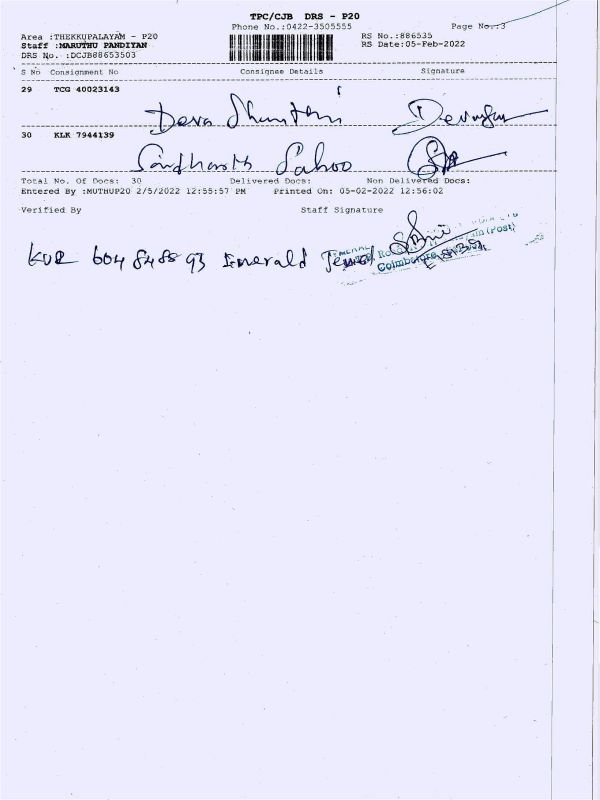 TPC/CJB DRS - P20
Phone No.:0422-3505555
Page No.:3
Area :THEKKUPALAYAM - P20
RS No.:886535
Staff :MARUTHU PANDIYAN
RS Date:05-Feb-2022
DRS No. :DCJB88653503
S No Consignment No Consignee Details Signature
29 TCG 40023143
Deva Shanthi
30 KLK 7944139
Sahoo
Total No. Of Docs: 30 Delivered Docs: Non Delivered Docs:
Entered By :MUTHUP20 2/5/2022 12:55:57 PM Printed On: 05-02-2022 12:56:02
Verified By Staff Signature
Emerald Jewel
Coimbatore
(Post)